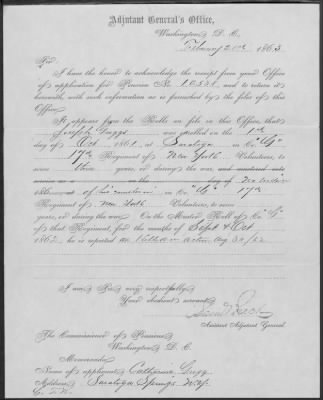 Adjutant General's Office,
Washington D. C.
February 2nd 1863.
Sir:
I have the honor to acknowledge the receipt from your Office
of application for Pension No. and to return it
herewith, with such information as is furnished by the files of this
Office.
It appears from the Rolls on file in this Office, that
Joseph was enrolled on the 1st
day of Oct, 1861, at Saratoga in Co. "G"
77th Regiment of New York Volunteers, to serve
three years, or during the war, and mustered into
service as a on the day of
186 at in Co. "G" 77th
Regiment of New York Volunteers, to serve
years, or during the war. On the Muster Roll of Co. "G"
of that Regiment, for the months of Sept & Oct
1862, he is reported Killed in action Aug 30/62
I am, Sir, very respectfully,
Your obedient servant,
Assistant Adjutant General.
The Commissioner of Pensions,
Washington D. C.
Memoranda:
Name of applicant, Catharine
Address, Saratoga Springs N.Y.